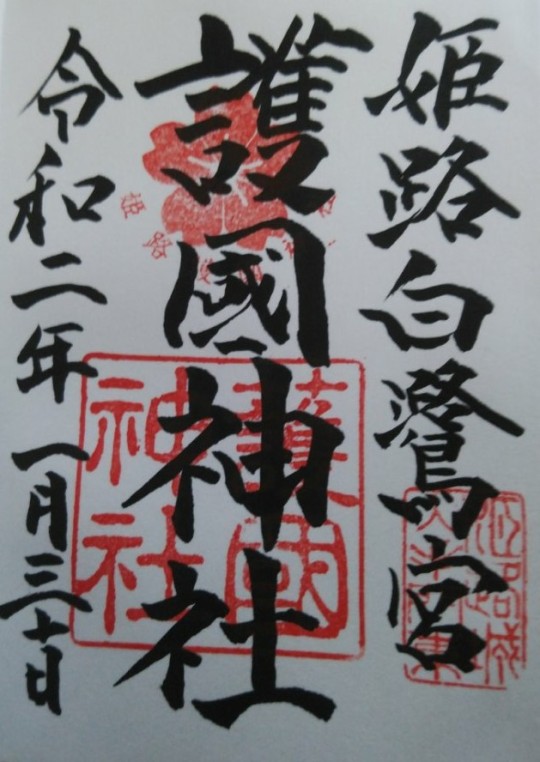 姫路白鷺宮
護國神社
令和二年一月三十日
護國
神社
姫路城